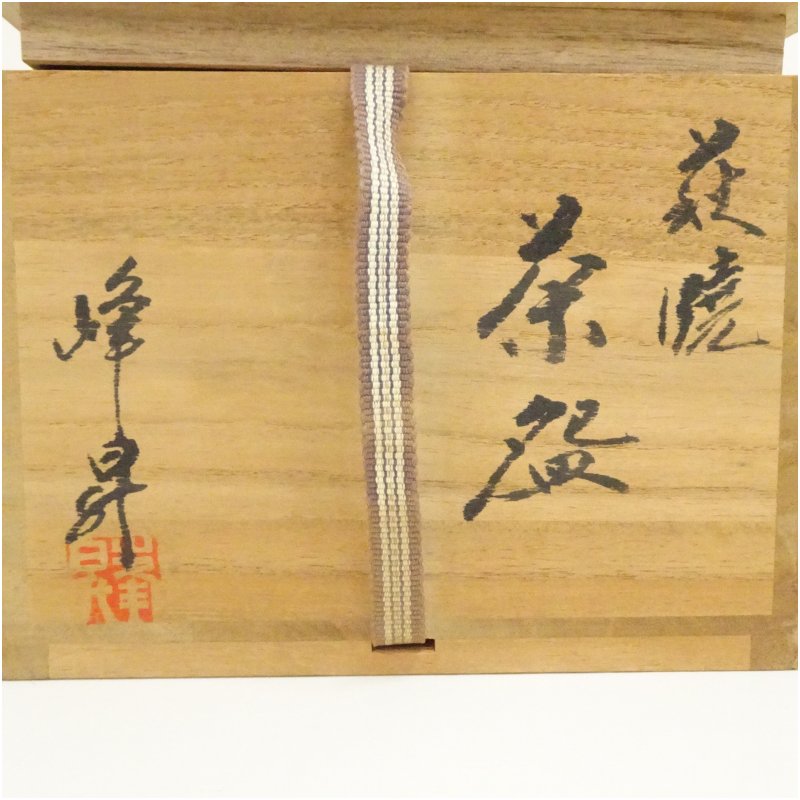 萩焼
茶盌
峰昇